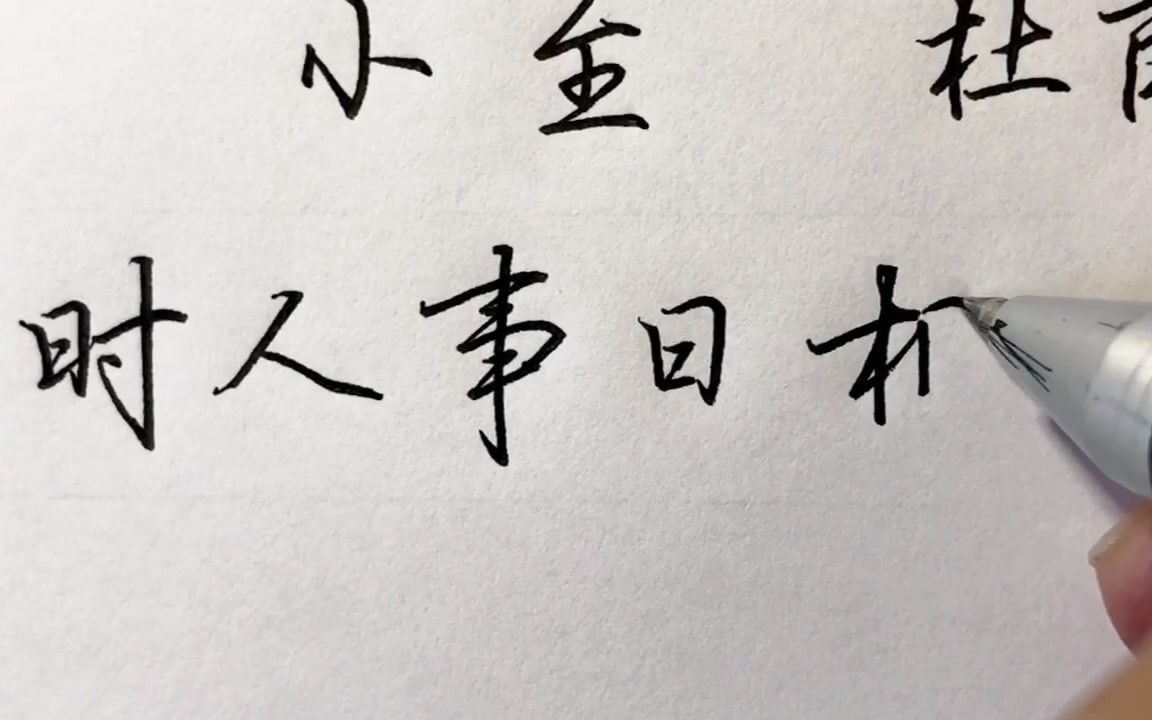 小至 杜
时人事日